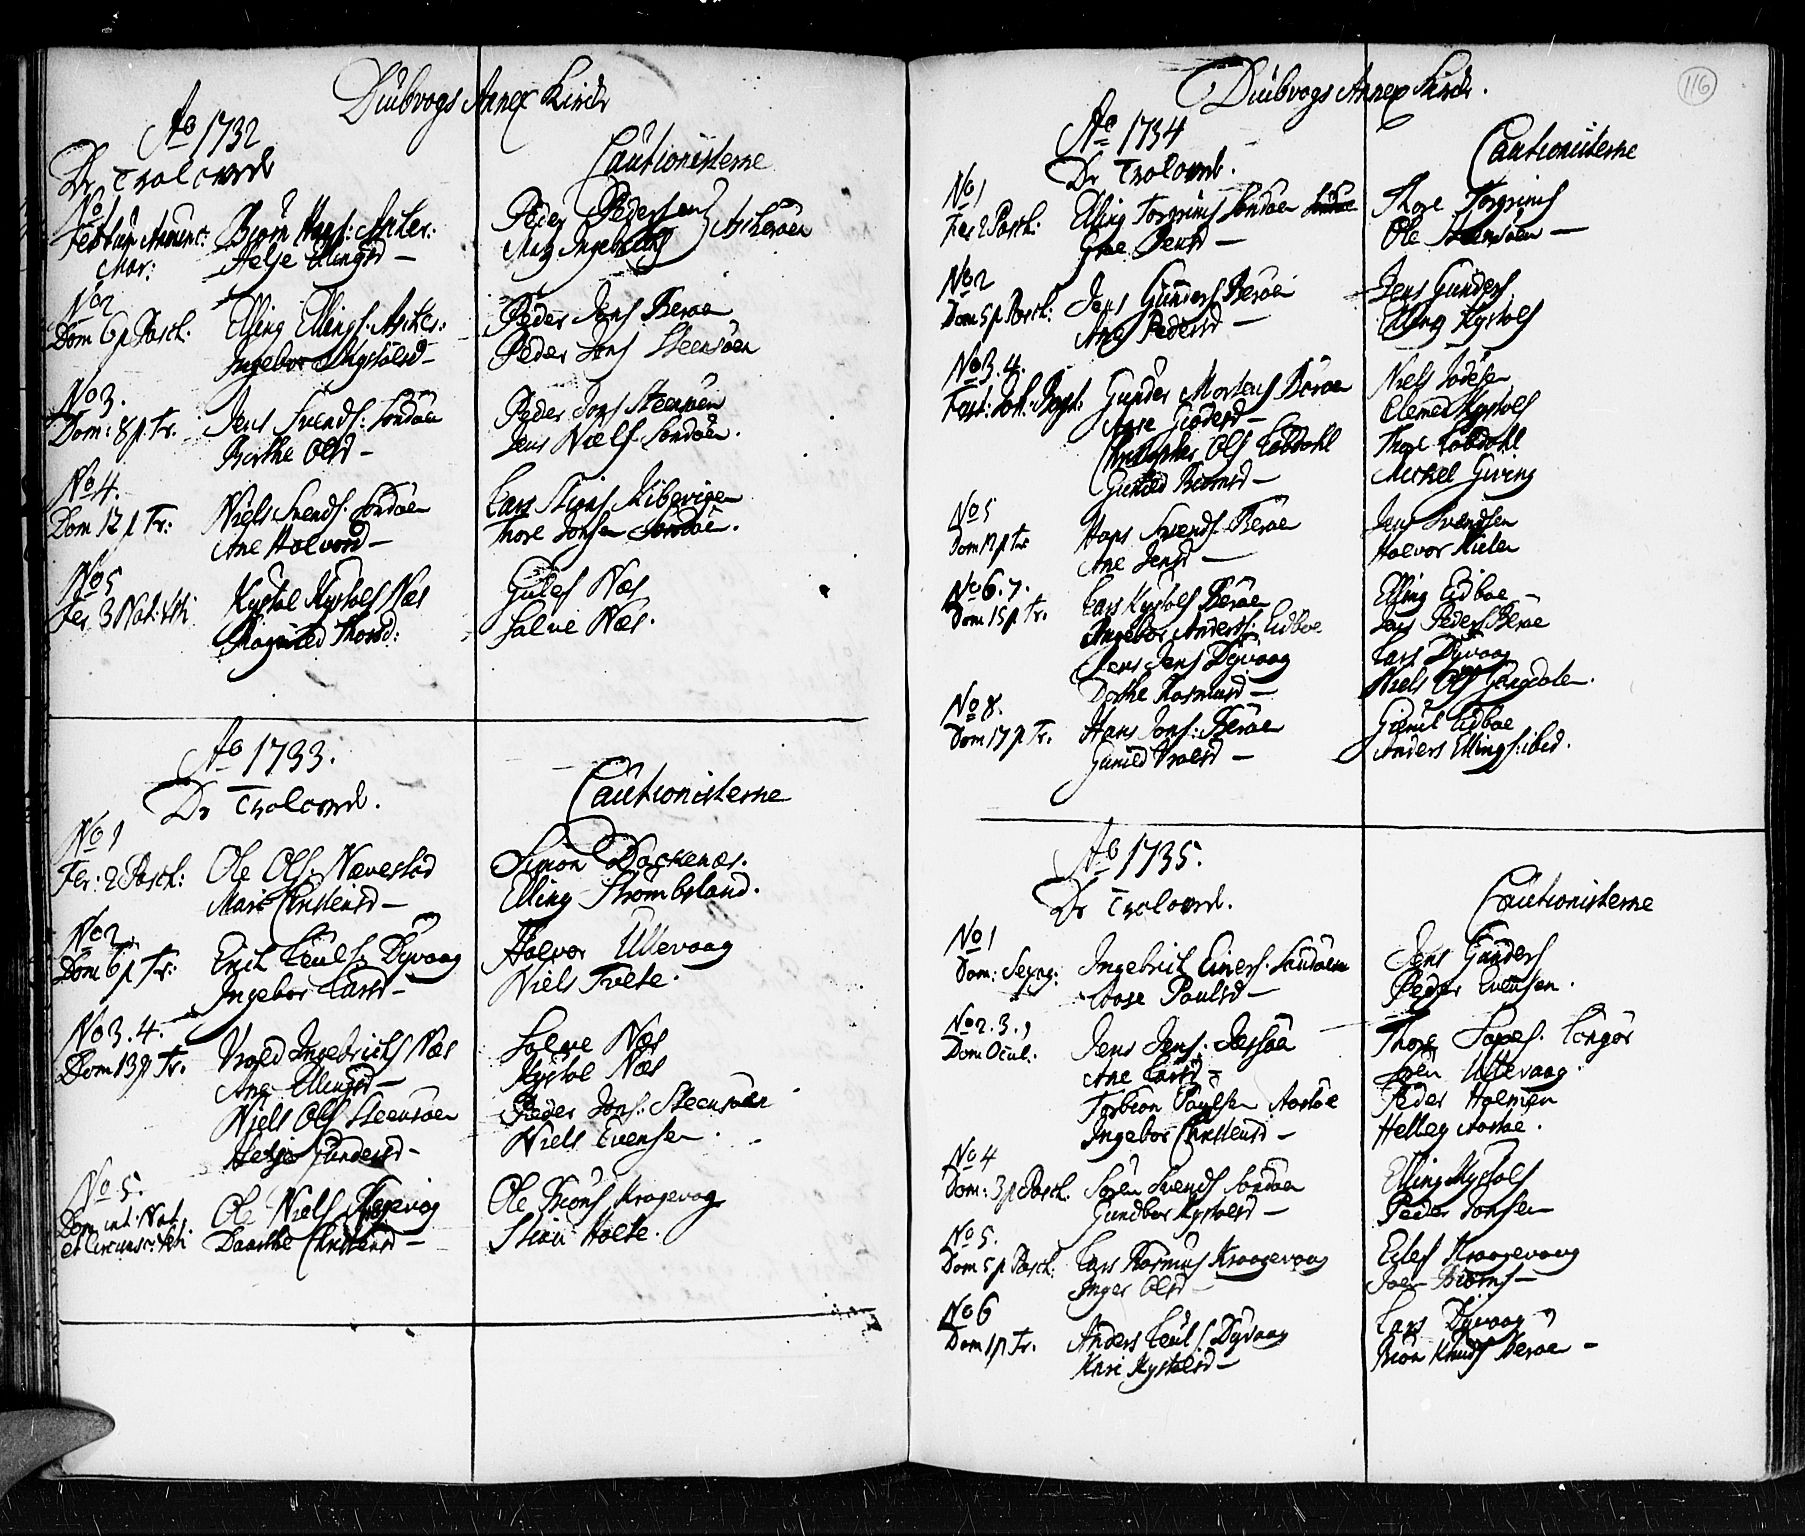 Diubvogs Annex Kirche
Ao 1732
De Trolovede
Cautionisterne
No 1
Festum Anunc: Mar:
Biørn Hans: Asker:
Helje Ellingsd –
Peder Pedersen
Askerøen
No 2
Dom 6 p Pasch.
Elling Ellings: Asker:
Ingebor Kystolsd –
Peder Jens Berøe
Peder Jons Steensøen
No 3.
Dom: 8 p Tr.
Jens Svends: Sondøe
Birthe Olsd –
Peder Jons Steensøen
Jens Niels: Sondøen.
No 4.
Dom 12 p Tr:
Niels Svends: Sondøen
Ane Halvord –
Lars Stians Kibevigen
Thore Jonsen Sondøe.
No 5
Fer 3 Nat: Xsti
Kystol Kystols Næs
Magnild Thorsd:
Gulef Næs
Salve Næs.
Ao 1733.
De Trolovede.
Cautionisterne
No 1
Fer: 2 Pasch:
Ole Ols: Nævestad
Mari Christensd –
Simon Dockenæs.
Elling Strømbsland.
No 2
Dom 6 p Tr:
Erik Leuls: Dyvaag
Ingebor Larsd –
Halvor Ullevaag
Niels Tvete.
No 3. 4.
Dom 13 p Tr.
Vrold Ingebricts Næs
Ane Ellingsd –
Niels Ols Steensøen
Helje Gundersd –
Salve Næs
Kystol Næs
Peder Jons: Steensøen
Niels Evensen.
No 5.
Dom int: Nat. et Circumsc: Xsti
Ole Niels
Daarthe Christensd –
Ole Krogevog
Stian Holte.
116
Diubvogs Annex Kirche.
Ao 1734
De Trolovede.
Cautionisterne
No 1
Fer 2 Pasch:
Elling Torgrims Sondøen
Groe Jensd –
Thore Torgrims
Ole Steensøen –
No 2
Dom 5 p Pasch:
Jens Gunders Berøe
Ane Pedersd –
Jens Gunders
Elling Kystols
No 3. 4.
Fest: Joh: Bapt:
Gunder Mortens Borøe
Aase
Christopher Ols Løbdahl
Gunild Biørnsd –
Niels
Clemed Kystols
Thore Løbdahl
Michel Giving
No 5
Dom 12 p Tr
Hans Svends: Berøe
Ane Jensd –
Jens Svendsen
Halvor Kilen
No 6. 7.
Dom 15 p Tr.
Lars Kystols Berøe
Ingebor Anders: Eidboe
Jens Jens Dyvaag
Dorthe Rasmusd –
Elling Eidboe –
Jens Peders Berøe
Lars Dyvaag
Niels Ols Gongdalen.
No 8.
Dom 17 p Tr.
Hans Jons: Berøe
Gunild Vroldsd –
Giemit Eidboe
Anders Ellings: ibid.
Ao 1735.
De Trolovede.
Cautionisterne
No 1
Dom: Sexag:
Ingebrict Einers: Sandøen
Aase Paulsd –
Jens Gunders
Peder Evensen.
No 2. 3.
Dom Ocul.
Jens Jens: Jessøe
Ane Larsd –
Torbion Paulsen Aastøe
Ingebor Christensd –
Thore Longøe
Ullevaag.
Peder Holmen
Helley Aastøe.
No 4
Dom: 3 p Pasch.
Søren Svends Sondøen
Gundbor Kystolsd –
Elling Kystols
Peder Jonsen
No 5.
Dom 5 p Pasch:
Lars Rasmus Kraagevaag
Inger Olsd –
Edlef Kraagevaag
Joen Biørns –
No 6
Dom 1 p Tr.
Anders Leuls: Dyvaag
Kari Kystolsd –
Lars Dyvaag
Biøn Knuds Berøe –